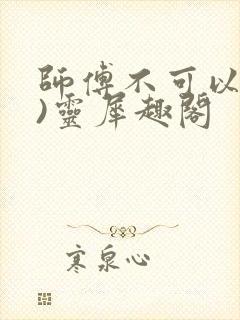 師傅不可以
)靈犀趣閣
寒泉心